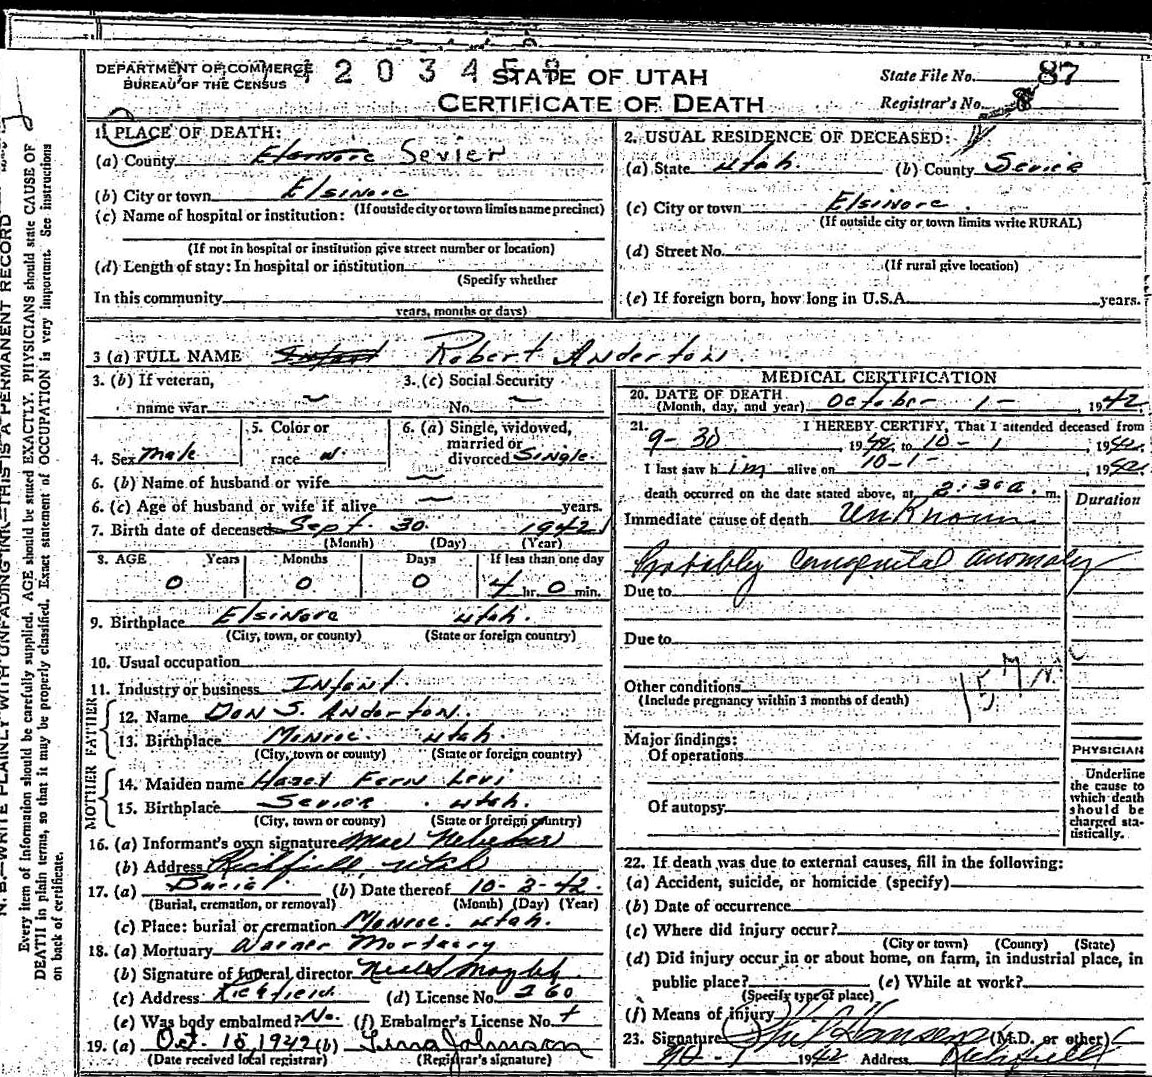 DEPARTMENT OF COMMERCE
BUREAU OF THE CENSUS
4 2 0 3 4 5
STATE OF UTAH
CERTIFICATE OF DEATH
State File No. 87
Registrar's No. 8
1. PLACE OF DEATH:
(a) County Elsinore Sevier
(b) City or town Elsinore
(If outside city or town limits name precinct)
(c) Name of hospital or institution:
(If not in hospital or institution give street number or location)
(d) Length of stay: In hospital or institution
(Specify whether
In this community
years, months or days)
2. USUAL RESIDENCE OF DECEASED:
(a) State Utah. (b) County Sevier
(c) City or town Elsinore.
(If outside city or town limits write RURAL)
(d) Street No.
(If rural give location)
(e) If foreign born, how long in U.S.A. years.
3 (a) FULL NAME Infant Robert Anderton.
3. (b) If veteran,
name war
3. (c) Social Security
No.
4. Sex Male
5. Color or
race W
6. (a) Single, widowed,
married or
divorced Single.
6. (b) Name of husband or wife
6. (c) Age of husband or wife if alive years.
7. Birth date of deceased Sept. 30 1942
(Month) (Day) (Year)
8. AGE Years Months Days If less than one day
0 0 0 4 hr. 0 min.
9. Birthplace Elsinore Utah.
(City, town, or county) (State or foreign country)
10. Usual occupation
11. Industry or business Infant.
FATHER
12. Name Don S. Anderton.
13. Birthplace Monroe Utah.
(City, town or county) (State or foreign country)
MOTHER
14. Maiden name Hazel Fern Levi
15. Birthplace Sevier Utah.
(City, town or county) (State or foreign country)
16. (a) Informant's own signature Mae
(b) Address Richfield, Utah
17. (a) Burial (b) Date thereof 10-3-42.
(Burial, cremation, or removal) (Month) (Day) (Year)
(c) Place: burial or cremation Monroe Utah.
18. (a) Mortuary Warner Mortuary
(b) Signature of funeral director
(c) Address Richfield. (d) License No. 260
(e) Was body embalmed? No. (f) Embalmer's License No.
19. (a) Oct. 15, 1942 (b) Lena Johnson
(Date received local registrar) (Registrar's signature)
MEDICAL CERTIFICATION
20. DATE OF DEATH
(Month, day, and year) October 1 - , 1942.
21. I HEREBY CERTIFY, That I attended deceased from
9-30, 1942 to 10-1, 1942.
I last saw him alive on 10-1-, 1942
death occurred on the date stated above, at 2:30 a. m.
Duration
Immediate cause of death Unknown
Probably Congenital anomaly
Due to
Due to
Other conditions
(Include pregnancy within 3 months of death)
157
Major findings:
Of operations
Of autopsy
PHYSICIAN
Underline
the cause to
which death
should be
charged sta-
tistically.
22. If death was due to external causes, fill in the following:
(a) Accident, suicide, or homicide (specify)
(b) Date of occurrence
(c) Where did injury occur?
(City or town) (County) (State)
(d) Did injury occur in or about home, on farm, in industrial place, in
public place? (e) While at work?
(Specify type of place)
(f) Means of injury
23. Signature Hansen (M.D. or other)
1942 Address Richfield
N. B.—WRITE PLAINLY WITH UNFADING INK—THIS IS A PERMANENT RECORD
Every item of information should be carefully supplied. AGE should be stated EXACTLY. PHYSICIANS should state CAUSE OF
DEATH in plain terms, so that it may be properly classified. Exact statement of OCCUPATION is very important. See instructions
on back of certificate.